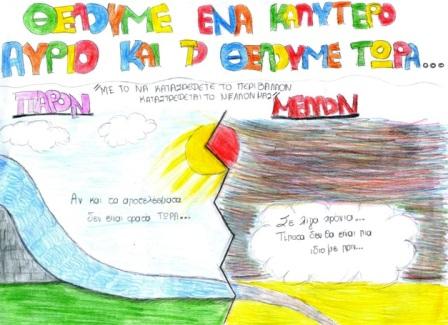 ΘΕΛΟΥΜΕ ΕΝΑ ΚΑΛΥΤΕΡΟ
ΑΥΡΙΟ ΚΑΙ ΤΟ ΘΕΛΟΥΜΕ ΤΩΡΑ...
"ΜΕ ΤΟ ΝΑ ΚΑΤΑΣΤΡΕΦΕΤΕ ΤΟ ΠΕΡΙΒΑΛΛΟΝ
ΚΑΤΑΣΤΡΕΦΕΤΑΙ ΤΟ ΜΕΛΛΟΝ ΜΑΣ"
ΠΑΡΟΝ
ΜΕΛΛΟΝ
Αν και τα αποτελέσματα
δεν είναι ορατά ΤΩΡΑ...
Σε λίγα χρόνια...
Τίποτα δεν θα είναι πια
ίδιο με πριν...